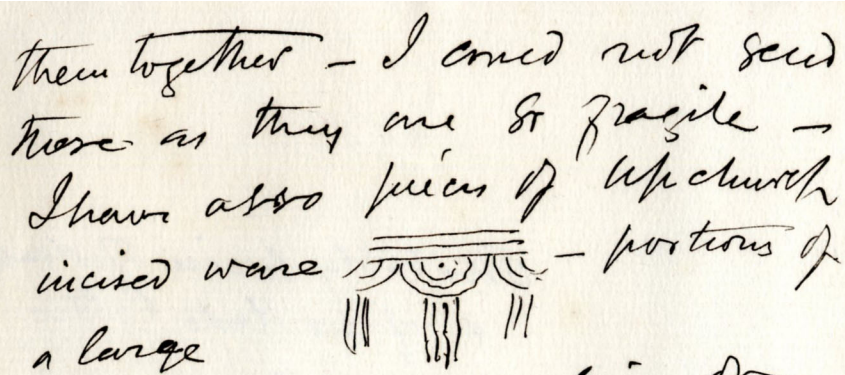 them together – I could not send
those as they are so fragile –
I have also pieces of Upchurch
incised ware – portions of
a large